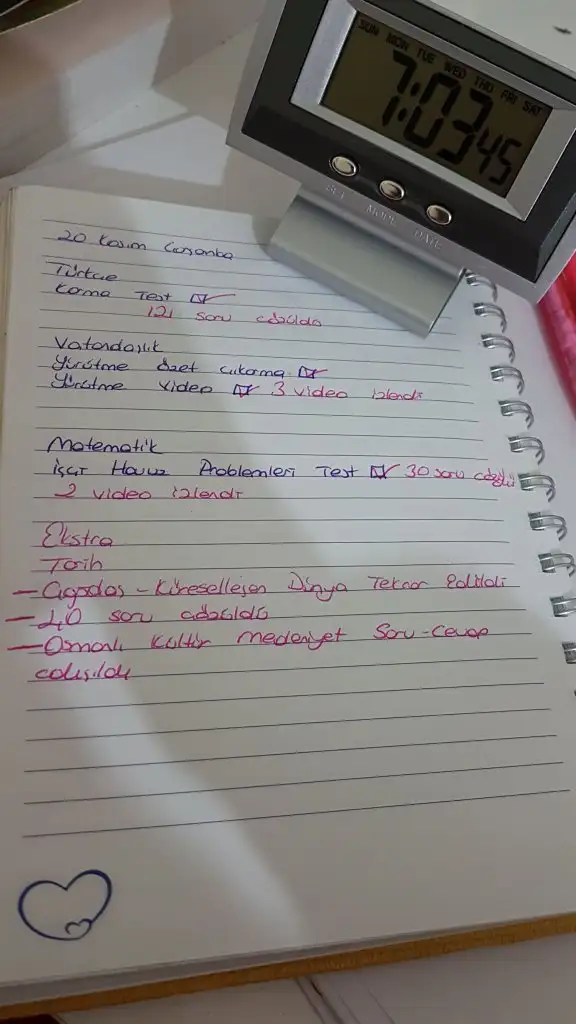 SUN MON TUE WED THU FRI SAT
7:03 45
SET MODE DATE
20 Kasım Çarşamba
Türkçe
Karma Test ☑
121 soru çözüldü
Vatandaşlık
Yürütme özet çıkarma ☑
Yürütme video ☑ 3 video izlendi
Matematik
İşçi Havuz Problemleri Test ☑ 30 soru çözüldü
2 video izlendi
Ekstra
Tarih
- Çağdaş - Küreselleşen Dünya Tekrar Edildi
- 40 soru çözüldü
- Osmanlı Kültür medeniyet Soru-Cevap
çalışıldı